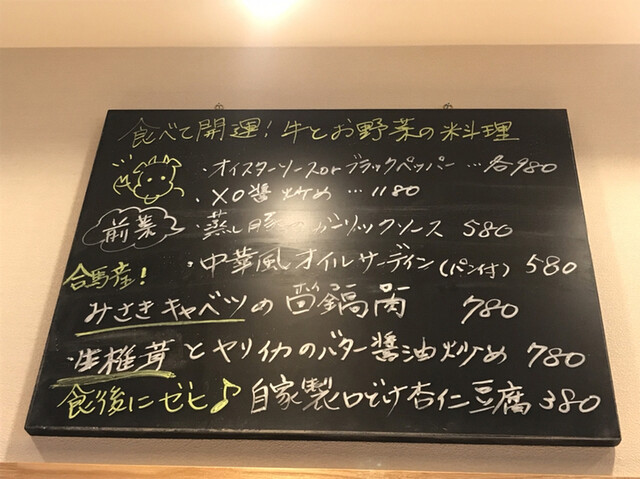 食べて開運！牛とお野菜の料理
・オイスターソースorブラックペッパー …各980
・XO醤炒め …1180
前菜
・蒸し豚のガーリックソース 580
・中華風オイルサーディン(パン付) 580
合馬産！
みさきキャベツの回鍋肉 780
生椎茸とヤリイカのバター醤油炒め 780
食後にゼヒ♪ 自家製口どけ杏仁豆腐 380